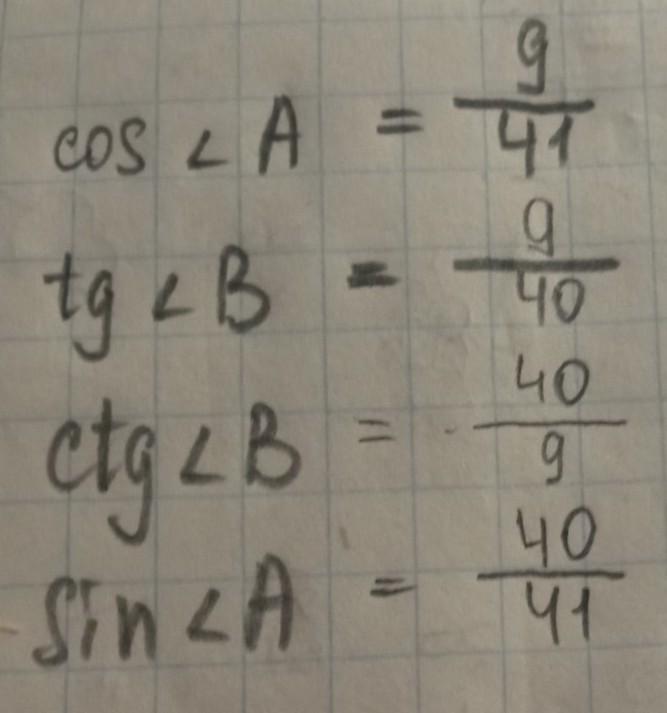 cos ∠A = 9/41
tg ∠B = 9/40
ctg ∠B = 40/9
sin ∠A = 40/41